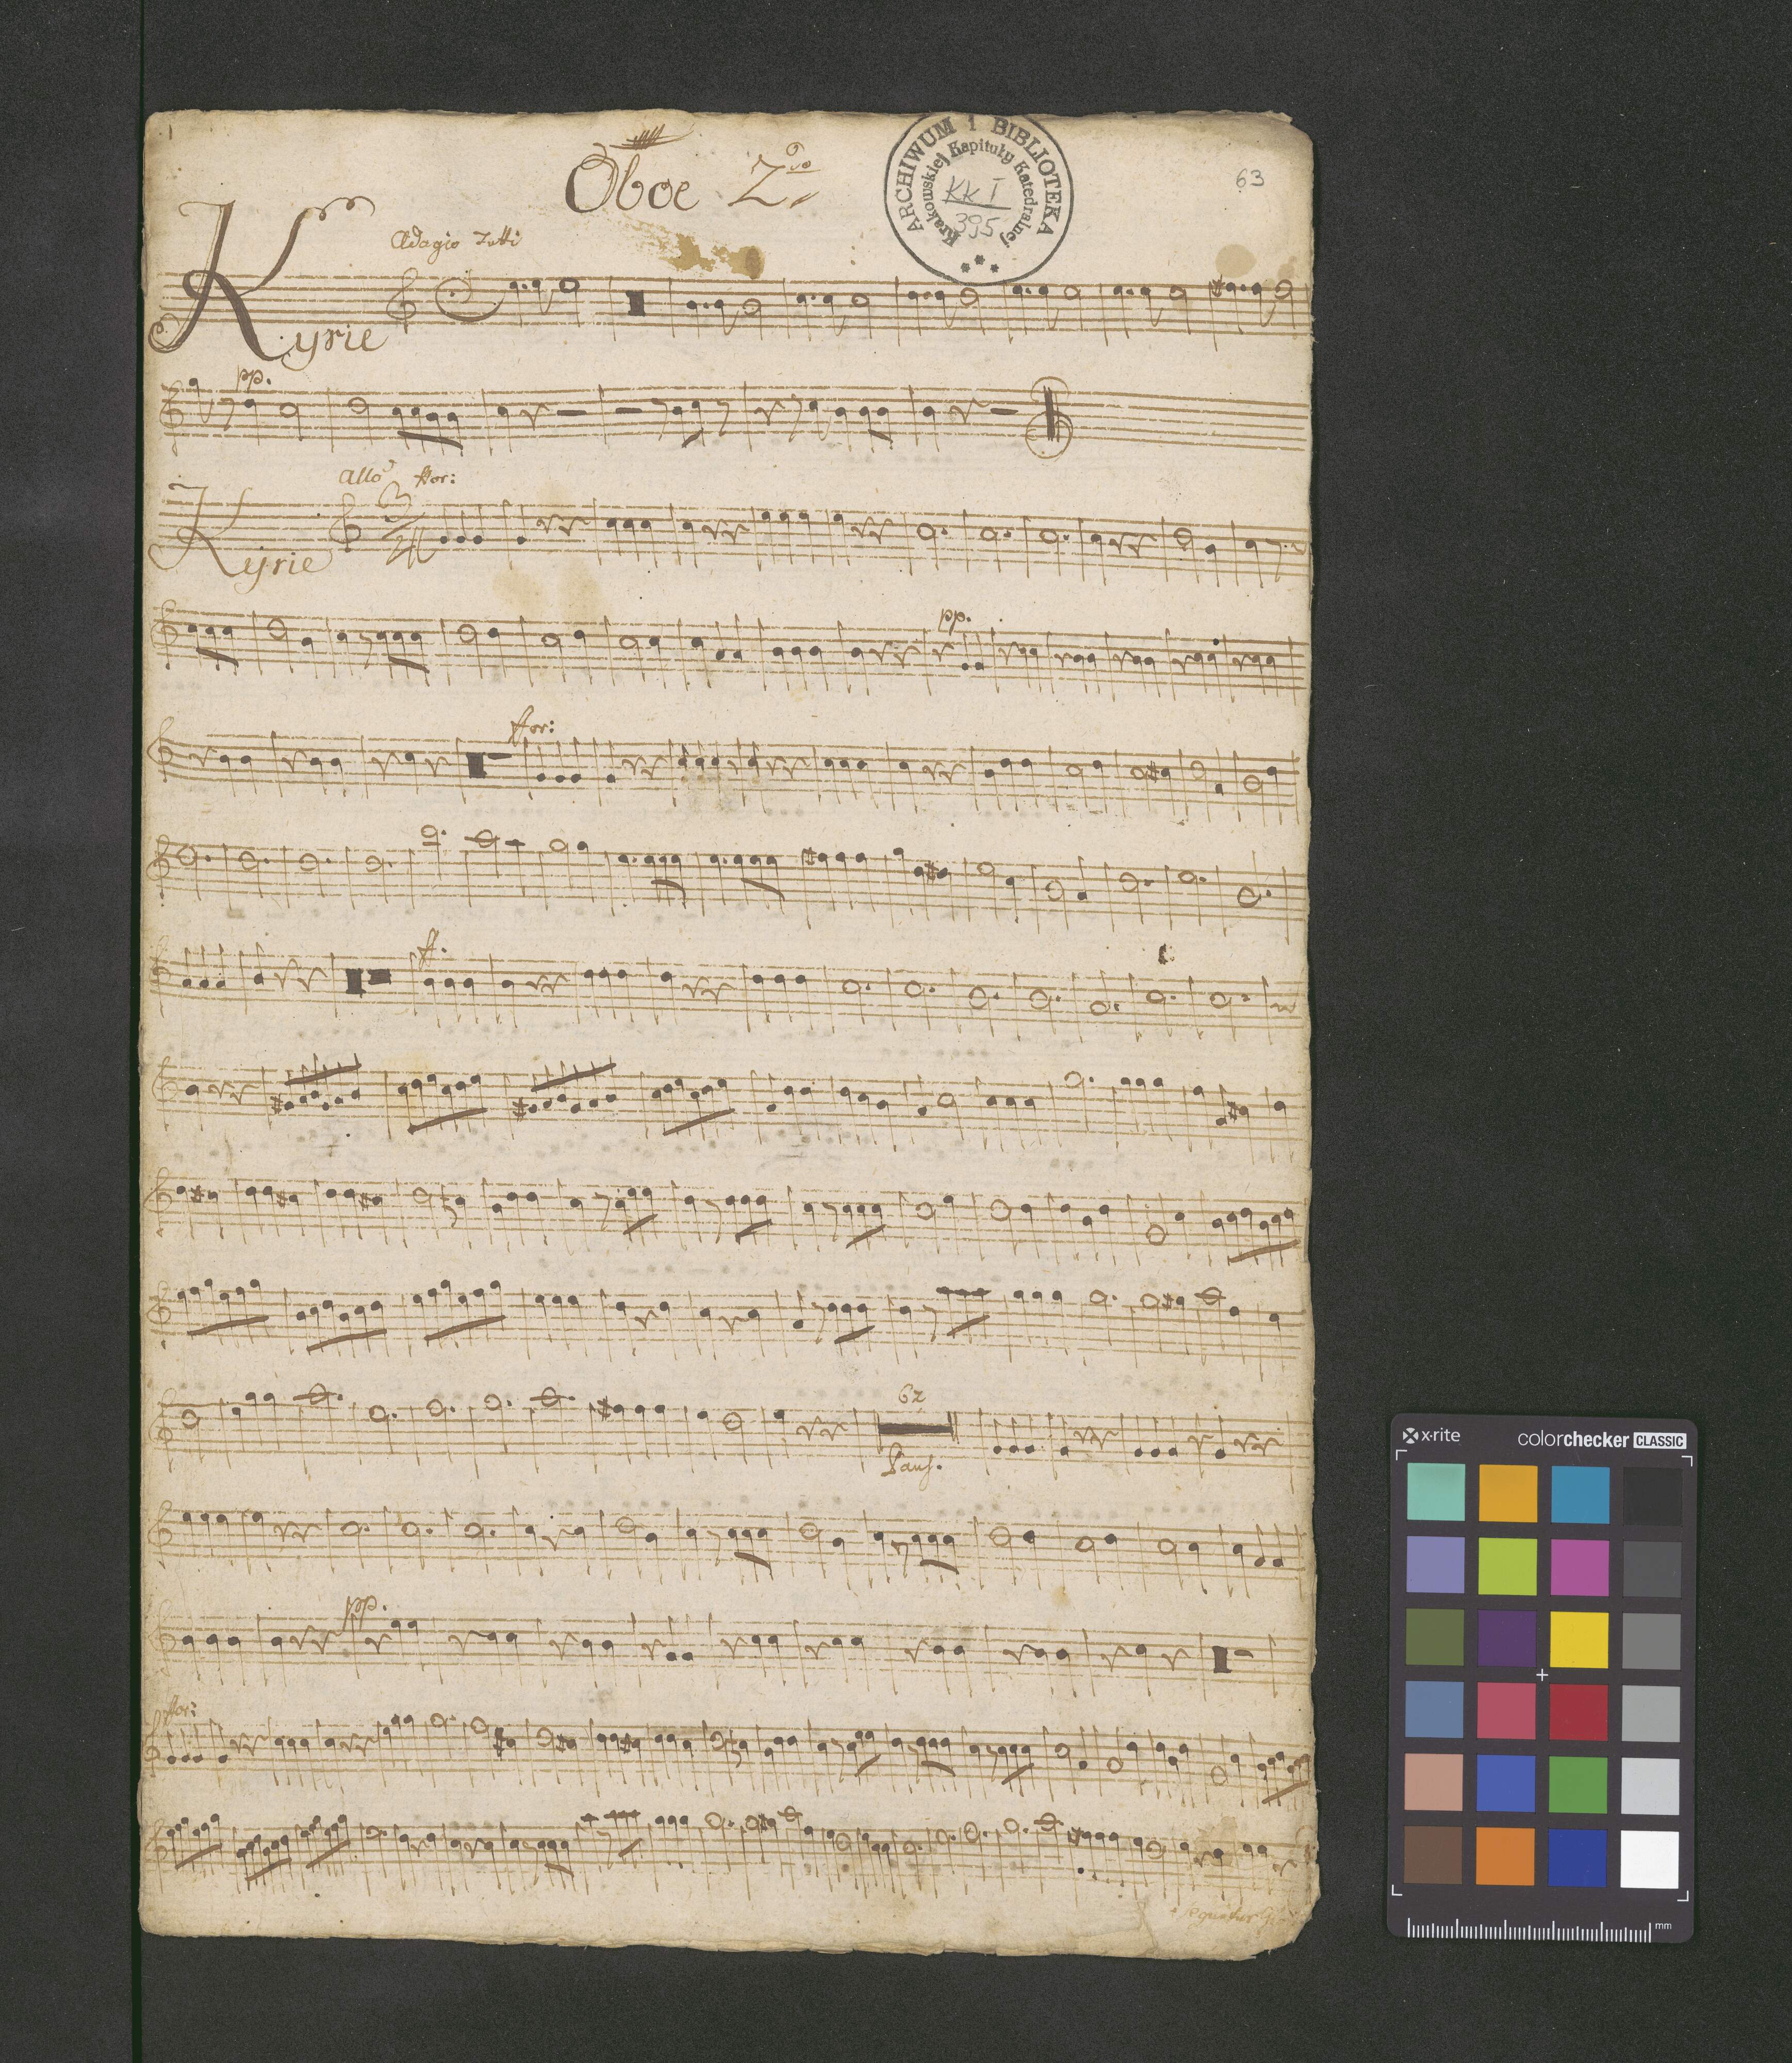 Oboe 2do
ARCHIWUM I BIBLIOTEKA
Krakowskiej Kapituły Katedralnej
KK I
395
63
Adagio Tutti
Kyrie
pp.
Allo for:
Kyrie
pp.
for:
f.
62
Paus.
pp.
for:
Sequitur
x-rite
colorchecker CLASSIC
mm